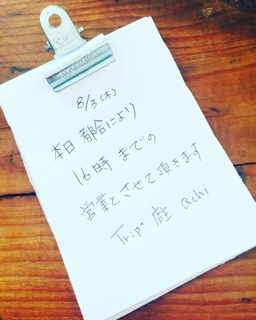 8/3(木)
本日 都合により
16時 までの
営業とさせて頂きます
Trip+ 庭 achi